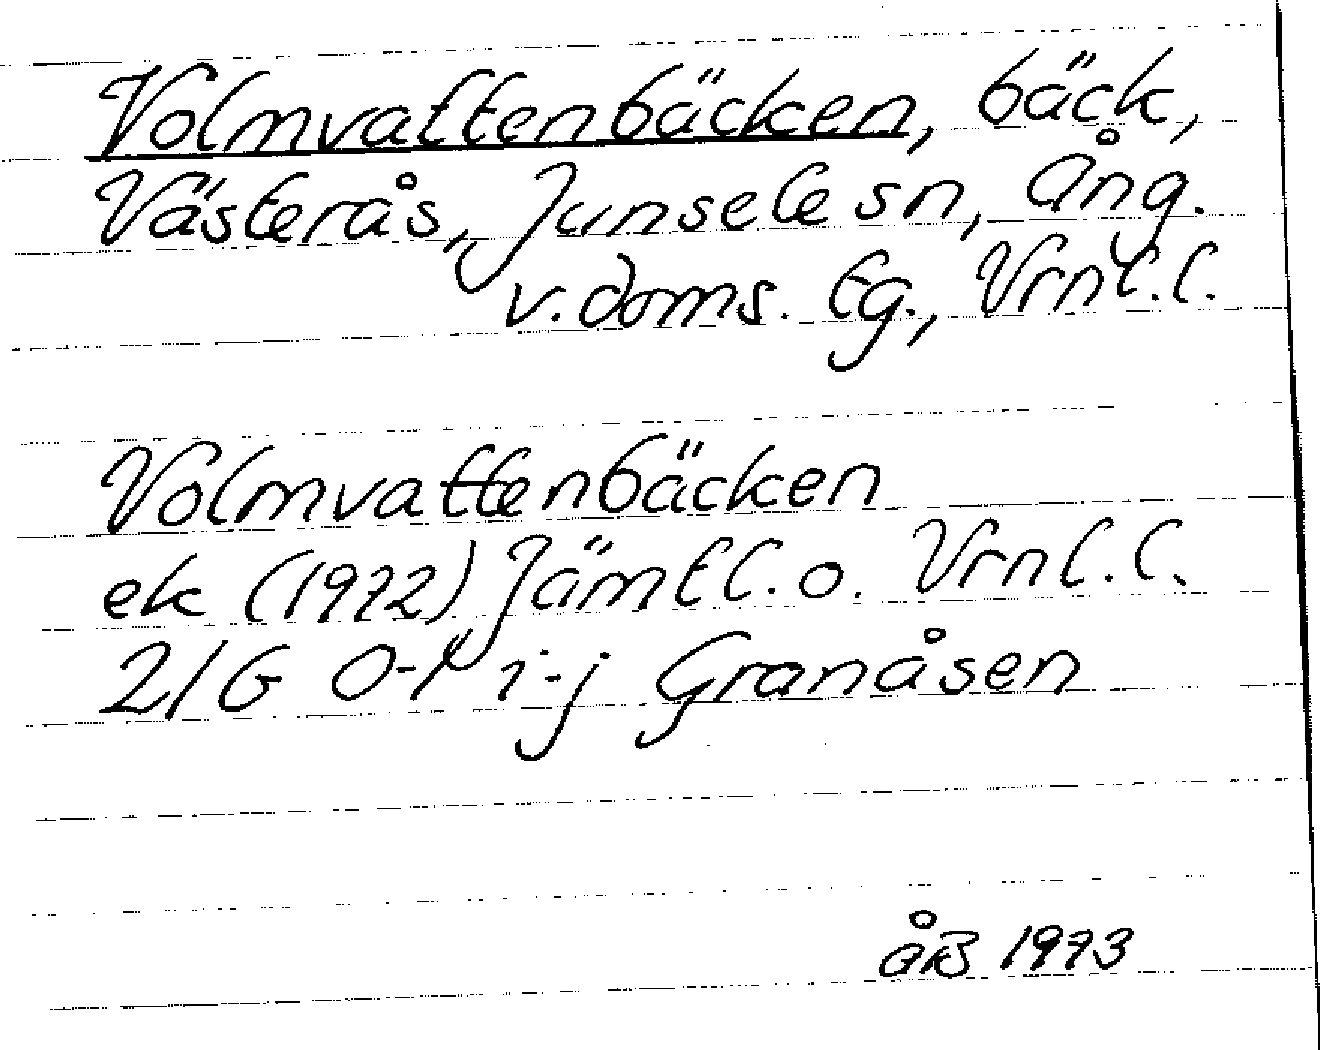 Volmvattenbäcken, bäck,
Västerås, Junsele sn, Ång.
v. doms. tg., Vrnl.l.
Volmvattenbäcken
ek (1972) Jämtl. o. Vrnl.l.
21G i-j Granåsen
ÅB 1973